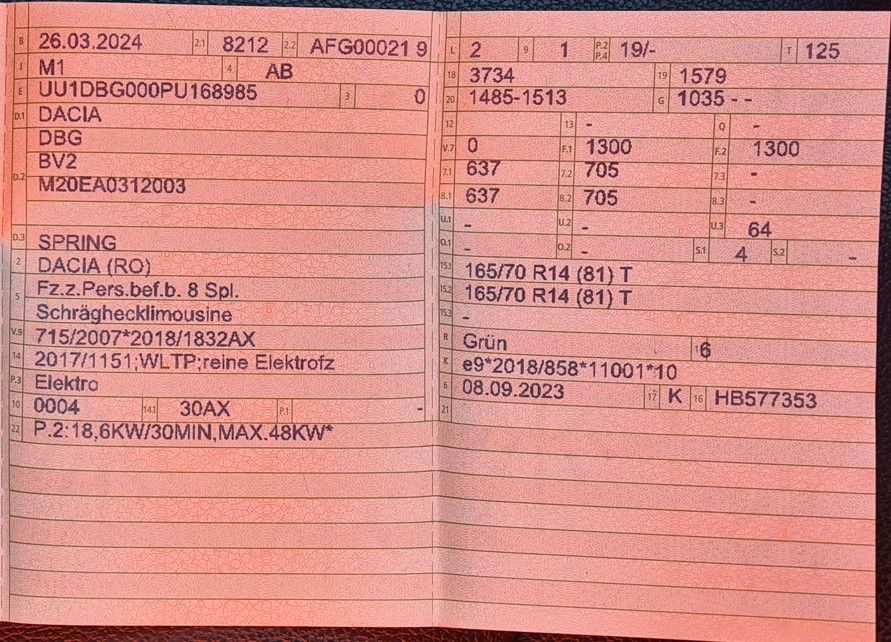 B 26.03.2024 2.1 8212 2.2 AFG00021 9
J M1 4 AB
E UU1DBG000PU168985 3 0
D.1 DACIA
DBG
D.2 BV2
M20EA0312003
D.3 SPRING
2 DACIA (RO)
5 Fz.z.Pers.bef.b. 8 Spl.
Schräghecklimousine
V.9 715/2007*2018/1832AX
14 2017/1151;WLTP;reine Elektrofz
P.3 Elektro
10 0004 14.1 30AX P.1 -
22 P.2:18,6KW/30MIN,MAX.48KW*
L 2 9 1 P.2 P.4 19/- T 125
18 3734 19 1579
20 1485-1513 G 1035 - -
12 13 - Q -
V.7 0 F.1 1300 F.2 1300
7.1 637 7.2 705 7.3 -
8.1 637 8.2 705 8.3 -
U.1 - U.2 - U.3 64
O.1 - O.2 - S.1 4 S.2 -
15.1 165/70 R14 (81) T
15.2 165/70 R14 (81) T
15.3 -
R Grün 6
K e9*2018/858*11001*10
6 08.09.2023 17 K 16 HB577353
21